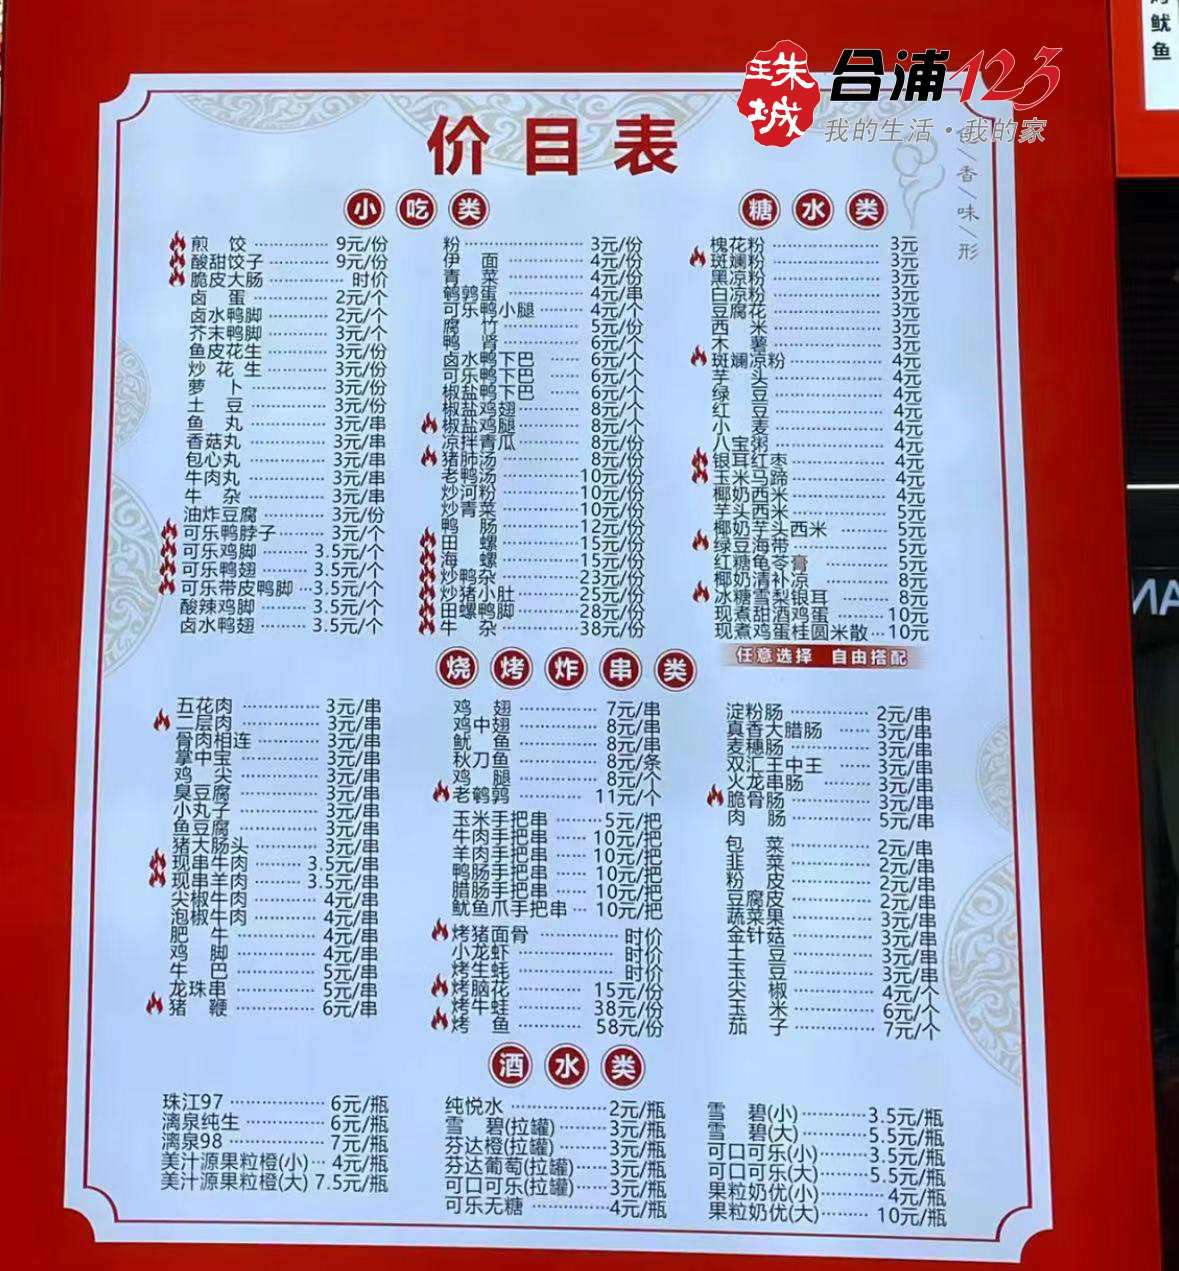 鱿
鱼
珠城
合浦123
我的生活·我的家
价目表
色/香/味/形
小吃类
煎饺 9元/份
酸甜饺子 9元/份
脆皮大肠 时价
卤蛋 2元/个
卤水鸭脚 2元/个
芥末鸭脚 3元/个
鱼皮花生 3元/份
炒花生 3元/份
萝卜 3元/份
土豆 3元/份
鱼丸 3元/串
香菇丸 3元/串
包心丸 3元/串
牛肉丸 3元/串
牛杂 3元/串
油炸豆腐 3元/份
可乐鸭脖子 3元/个
可乐鸡脚 3.5元/个
可乐鸭翅 3.5元/个
可乐带皮鸭脚 3.5元/个
酸辣鸡脚 3.5元/个
卤水鸭翅 3.5元/个
粉 3元/份
伊面 4元/份
青菜 4元/份
鹌鹑蛋 4元/串
可乐鸭小腿 4元/个
腐竹 5元/份
鸭肾 6元/个
卤水鸭下巴 6元/个
可乐鸭下巴 6元/个
椒盐鸭下巴 6元/个
椒盐鸡翅 8元/个
椒盐鸡腿 8元/个
凉拌青瓜 8元/份
猪肺汤 8元/份
老鸭汤 10元/份
炒河粉 10元/份
炒青菜 10元/份
鸭肠 12元/份
田螺 15元/份
海螺 15元/份
炒鸭杂 23元/份
炒猪小肚 25元/份
田螺鸭脚 28元/份
牛杂 38元/份
糖水类
槐花粉 3元
斑斓粉 3元
黑凉粉 3元
白凉粉 3元
豆腐花 3元
西米 3元
木薯 3元
斑斓凉粉 4元
芋头 4元
绿豆 4元
红豆 4元
小麦 4元
八宝粥 4元
银耳红枣 4元
玉米马蹄 4元
椰奶西米 4元
芋头西米 5元
椰奶芋头西米 5元
绿豆海带 5元
红糖龟苓膏 5元
椰奶清补凉 8元
冰糖雪梨银耳 8元
现煮甜酒鸡蛋 10元
现煮鸡蛋桂圆米散 10元
任意选择 自由搭配
烧烤炸串类
五花肉 3元/串
二层肉 3元/串
骨肉相连 3元/串
掌中宝 3元/串
鸡尖 3元/串
臭豆腐 3元/串
小丸子 3元/串
鱼豆腐 3元/串
猪大肠头 3元/串
现串牛肉 3.5元/串
现串羊肉 3.5元/串
尖椒牛肉 4元/串
泡椒牛肉 4元/串
肥牛 4元/串
鸡脚 4元/串
牛巴 5元/串
龙珠串 5元/串
猪鞭 6元/串
鸡翅 7元/串
鸡中翅 8元/串
鱿鱼 8元/串
秋刀鱼 8元/条
鸡腿 8元/个
老鹌鹑 11元/个
玉米手把串 5元/把
牛肉手把串 10元/把
羊肉手把串 10元/把
鸭肠手把串 10元/把
腊肠手把串 10元/把
鱿鱼爪手把串 10元/把
烤猪面骨 时价
小龙虾 时价
烤生蚝 时价
烤脑花 15元/份
烤牛蛙 38元/份
烤鱼 58元/份
淀粉肠 2元/串
真香大腊肠 3元/串
麦穗肠 3元/串
双汇王中王 3元/串
火龙串肠 3元/串
脆骨肠 3元/串
肉肠 5元/串
包菜 2元/串
韭菜 2元/串
粉皮 2元/串
豆腐皮 2元/串
蔬菜果 3元/串
金针菇 3元/串
土豆 3元/串
玉豆 3元/串
尖椒 4元/个
玉米 6元/个
茄子 7元/个
酒水类
珠江97 6元/瓶
漓泉纯生 6元/瓶
漓泉98 7元/瓶
美汁源果粒橙(小) 4元/瓶
美汁源果粒橙(大) 7.5元/瓶
纯悦水 2元/瓶
雪碧(拉罐) 3元/瓶
芬达橙(拉罐) 3元/瓶
芬达葡萄(拉罐) 3元/瓶
可口可乐(拉罐) 3元/瓶
可乐无糖 4元/瓶
雪碧(小) 3.5元/瓶
雪碧(大) 5.5元/瓶
可口可乐(小) 3.5元/瓶
可口可乐(大) 5.5元/瓶
果粒奶优(小) 4元/瓶
果粒奶优(大) 10元/瓶